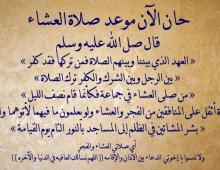 حان الآن موعد صلاة العشاء
قال صل الله عليه وسلم
« العهد الذي بيننا وبينهم الصلاة فمن تركها فقد كفر »
« بين الرجل وبين الشرك والكفر ترك الصلاة »
« من صلى العشاء في جماعة فكأنما قام نصف الليل »
أثقل على المنافقين من الفجر والعشاء ولو يعلمون ما فيهما لأتوهما
« بشر المشائين في الظلم إلى المساجد بالنور التام يوم القيامة »
أي صلاتي العشاء والفجر
ولا تنسوا يا إخوتي الدعاء بين الأذان والإقامه (( اللهم نسألك العافيه في الدنيا والآخره ))